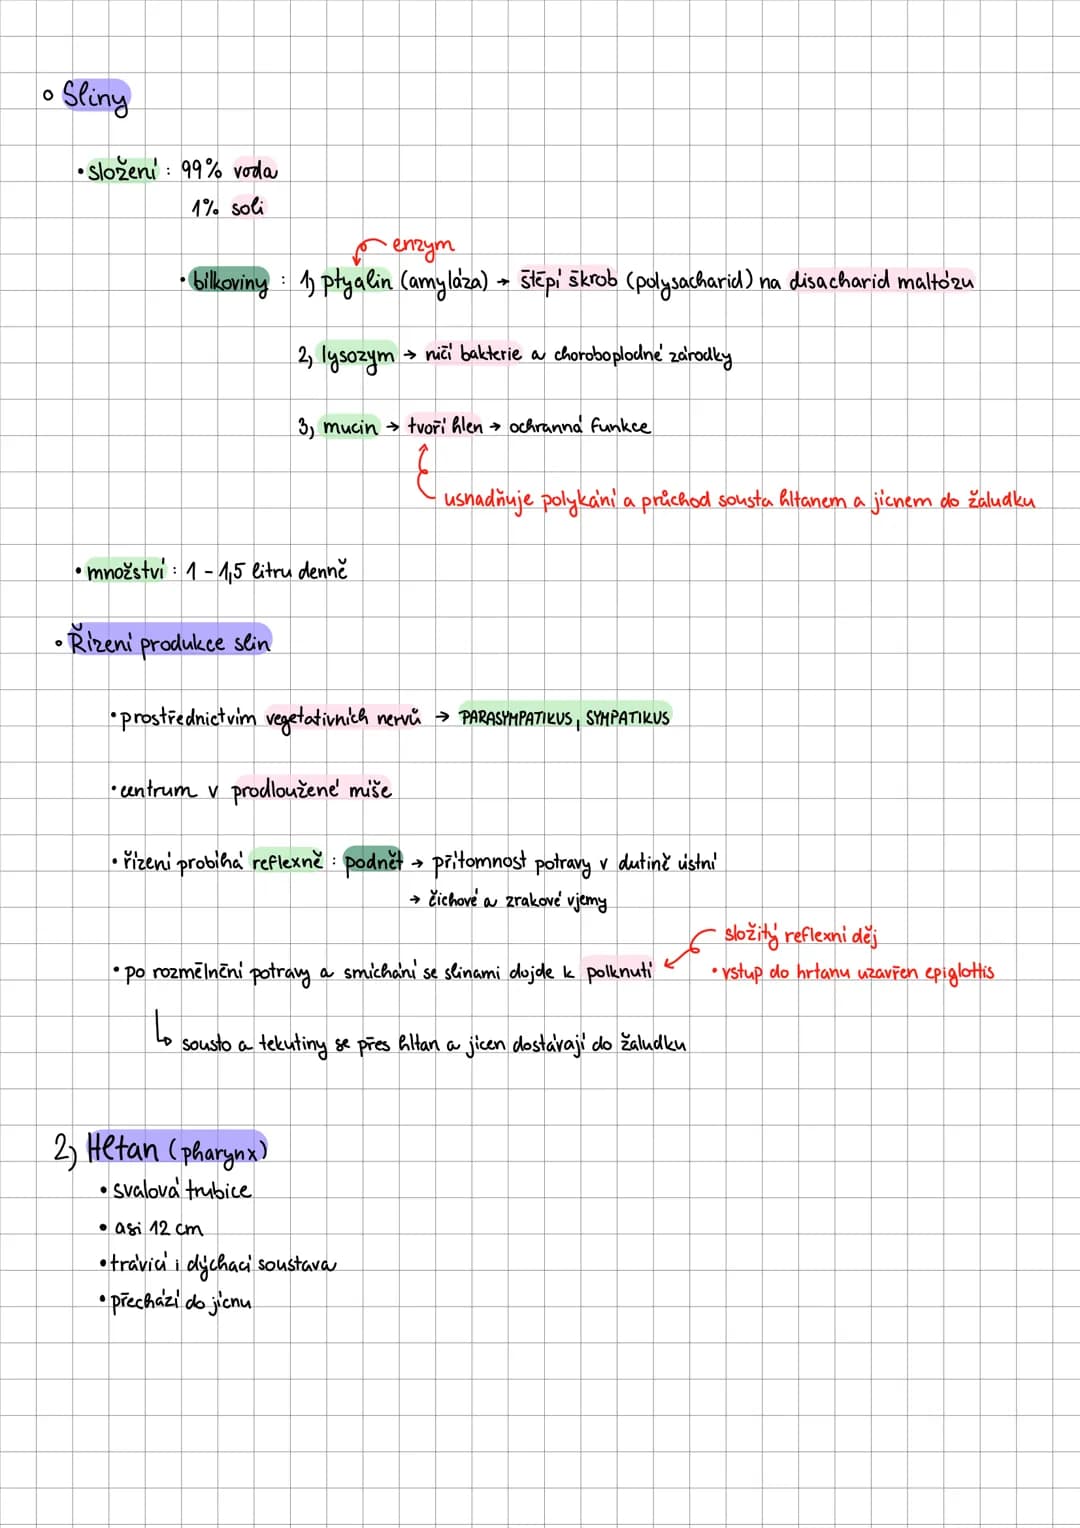 Sliny
• složení : 99% voda
1% soli
enzym
• bílkoviny : 1) ptyalin (amyláza) → štěpí škrob (polysacharid) na disacharid maltózu
2) lysozym → ničí bakterie a choroboplodné zárodky
3) mucin → tvoří hlen → ochranná funkce
usnadňuje polykání a průchod sousta hltanem a jícnem do žaludku
• množství : 1 - 1,5 litru denně
• Řízení produkce slin
• prostřednictvím vegetativních nervů → PARASYMPATIKUS, SYMPATIKUS
• centrum v prodloužené míše
• řízení probíhá reflexně : podnět → přítomnost potravy v dutině ústní
→ čichové a zrakové vjemy
složitý reflexní děj
• po rozmělnění potravy a smíchání se slinami dojde k polknutí • vstup do hrtanu uzavřen epiglottis
sousto a tekutiny se přes hltan a jícen dostávají do žaludku
2) Hltan (pharynx)
• svalová trubice
• asi 12 cm
• trávicí i dýchací soustava
• přechází do jícnu